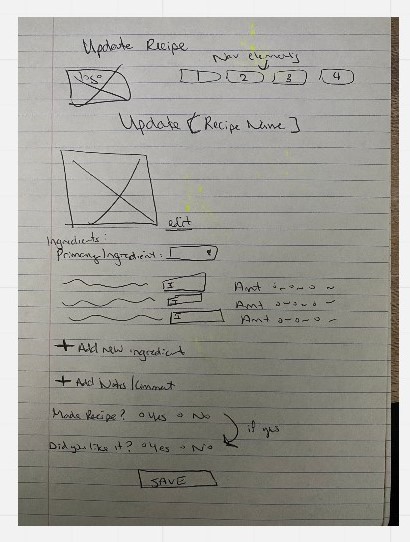 Update Recipe
Nav elements
logo
1 2 3 4
Update [Recipe Name]
edit
Ingredients:
Primary Ingredient:
I Amt
I Amt
I Amt
+ Add new ingredient
+ Add Notes/Comment
Made Recipe? o Yes o No
if yes
Did you like it? o Yes o No
SAVE